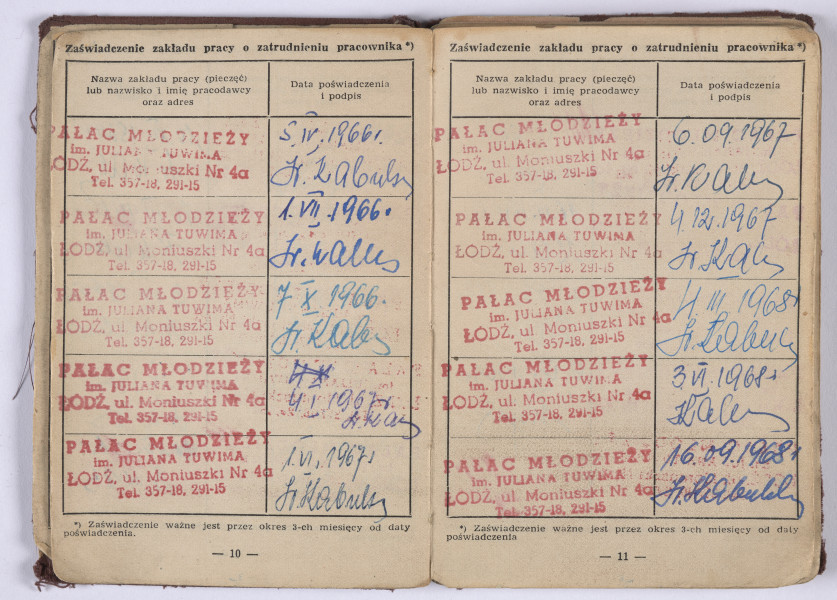 Zaświadczenie zakładu pracy o zatrudnieniu pracownika *)
Nazwa zakładu pracy (pieczęć)
lub nazwisko i imię pracodawcy
oraz adres
Data poświadczenia
i podpis
PAŁAC MŁODZIEŻY
im. JULIANA TUWIMA
ŁÓDŹ, ul. Moniuszki Nr 4a
Tel. 357-18, 291-15
5. IV. 1966 r.
PAŁAC MŁODZIEŻY
im. JULIANA TUWIMA
ŁÓDŹ, ul. Moniuszki Nr 4a
Tel. 357-18, 291-15
1. VII. 1966.
PAŁAC MŁODZIEŻY
im. JULIANA TUWIMA
ŁÓDŹ, ul. Moniuszki Nr 4a
Tel. 357-18, 291-15
7 X 1966.
PAŁAC MŁODZIEŻY
im. JULIANA TUWIMA
ŁÓDŹ, ul. Moniuszki Nr 4a
Tel. 357-18, 291-15
1967 r
PAŁAC MŁODZIEŻY
im. JULIANA TUWIMA
ŁÓDŹ, ul. Moniuszki Nr 4a
Tel. 357-18, 291-15
1. VI. 1967 r
*) Zaświadczenie ważne jest przez okres 3-ch miesięcy od daty
poświadczenia.
— 10 —
Zaświadczenie zakładu pracy o zatrudnieniu pracownika *)
Nazwa zakładu pracy (pieczęć)
lub nazwisko i imię pracodawcy
oraz adres
Data poświadczenia
i podpis
PAŁAC MŁODZIEŻY
im. JULIANA TUWIMA
ŁÓDŹ, ul. Moniuszki Nr 4a
Tel. 357-18, 291-15
6.09.1967
PAŁAC MŁODZIEŻY
im. JULIANA TUWIMA
ŁÓDŹ, ul. Moniuszki Nr 4a
Tel. 357-18, 291-15
4.12.1967
PAŁAC MŁODZIEŻY
im. JULIANA TUWIMA
ŁÓDŹ, ul. Moniuszki Nr 4a
Tel. 357-18, 291-15
4. III. 1968 r
PAŁAC MŁODZIEŻY
im. JULIANA TUWIMA
ŁÓDŹ, ul. Moniuszki Nr 4a
Tel. 357-18, 291-15
3. VI. 1968 r
PAŁAC MŁODZIEŻY
im. JULIANA TUWIMA
ŁÓDŹ, ul. Moniuszki Nr 4a
Tel. 357-18, 291-15
16.09.1968 r
*) Zaświadczenie ważne jest przez okres 3-ch miesięcy od daty
poświadczenia
— 11 —